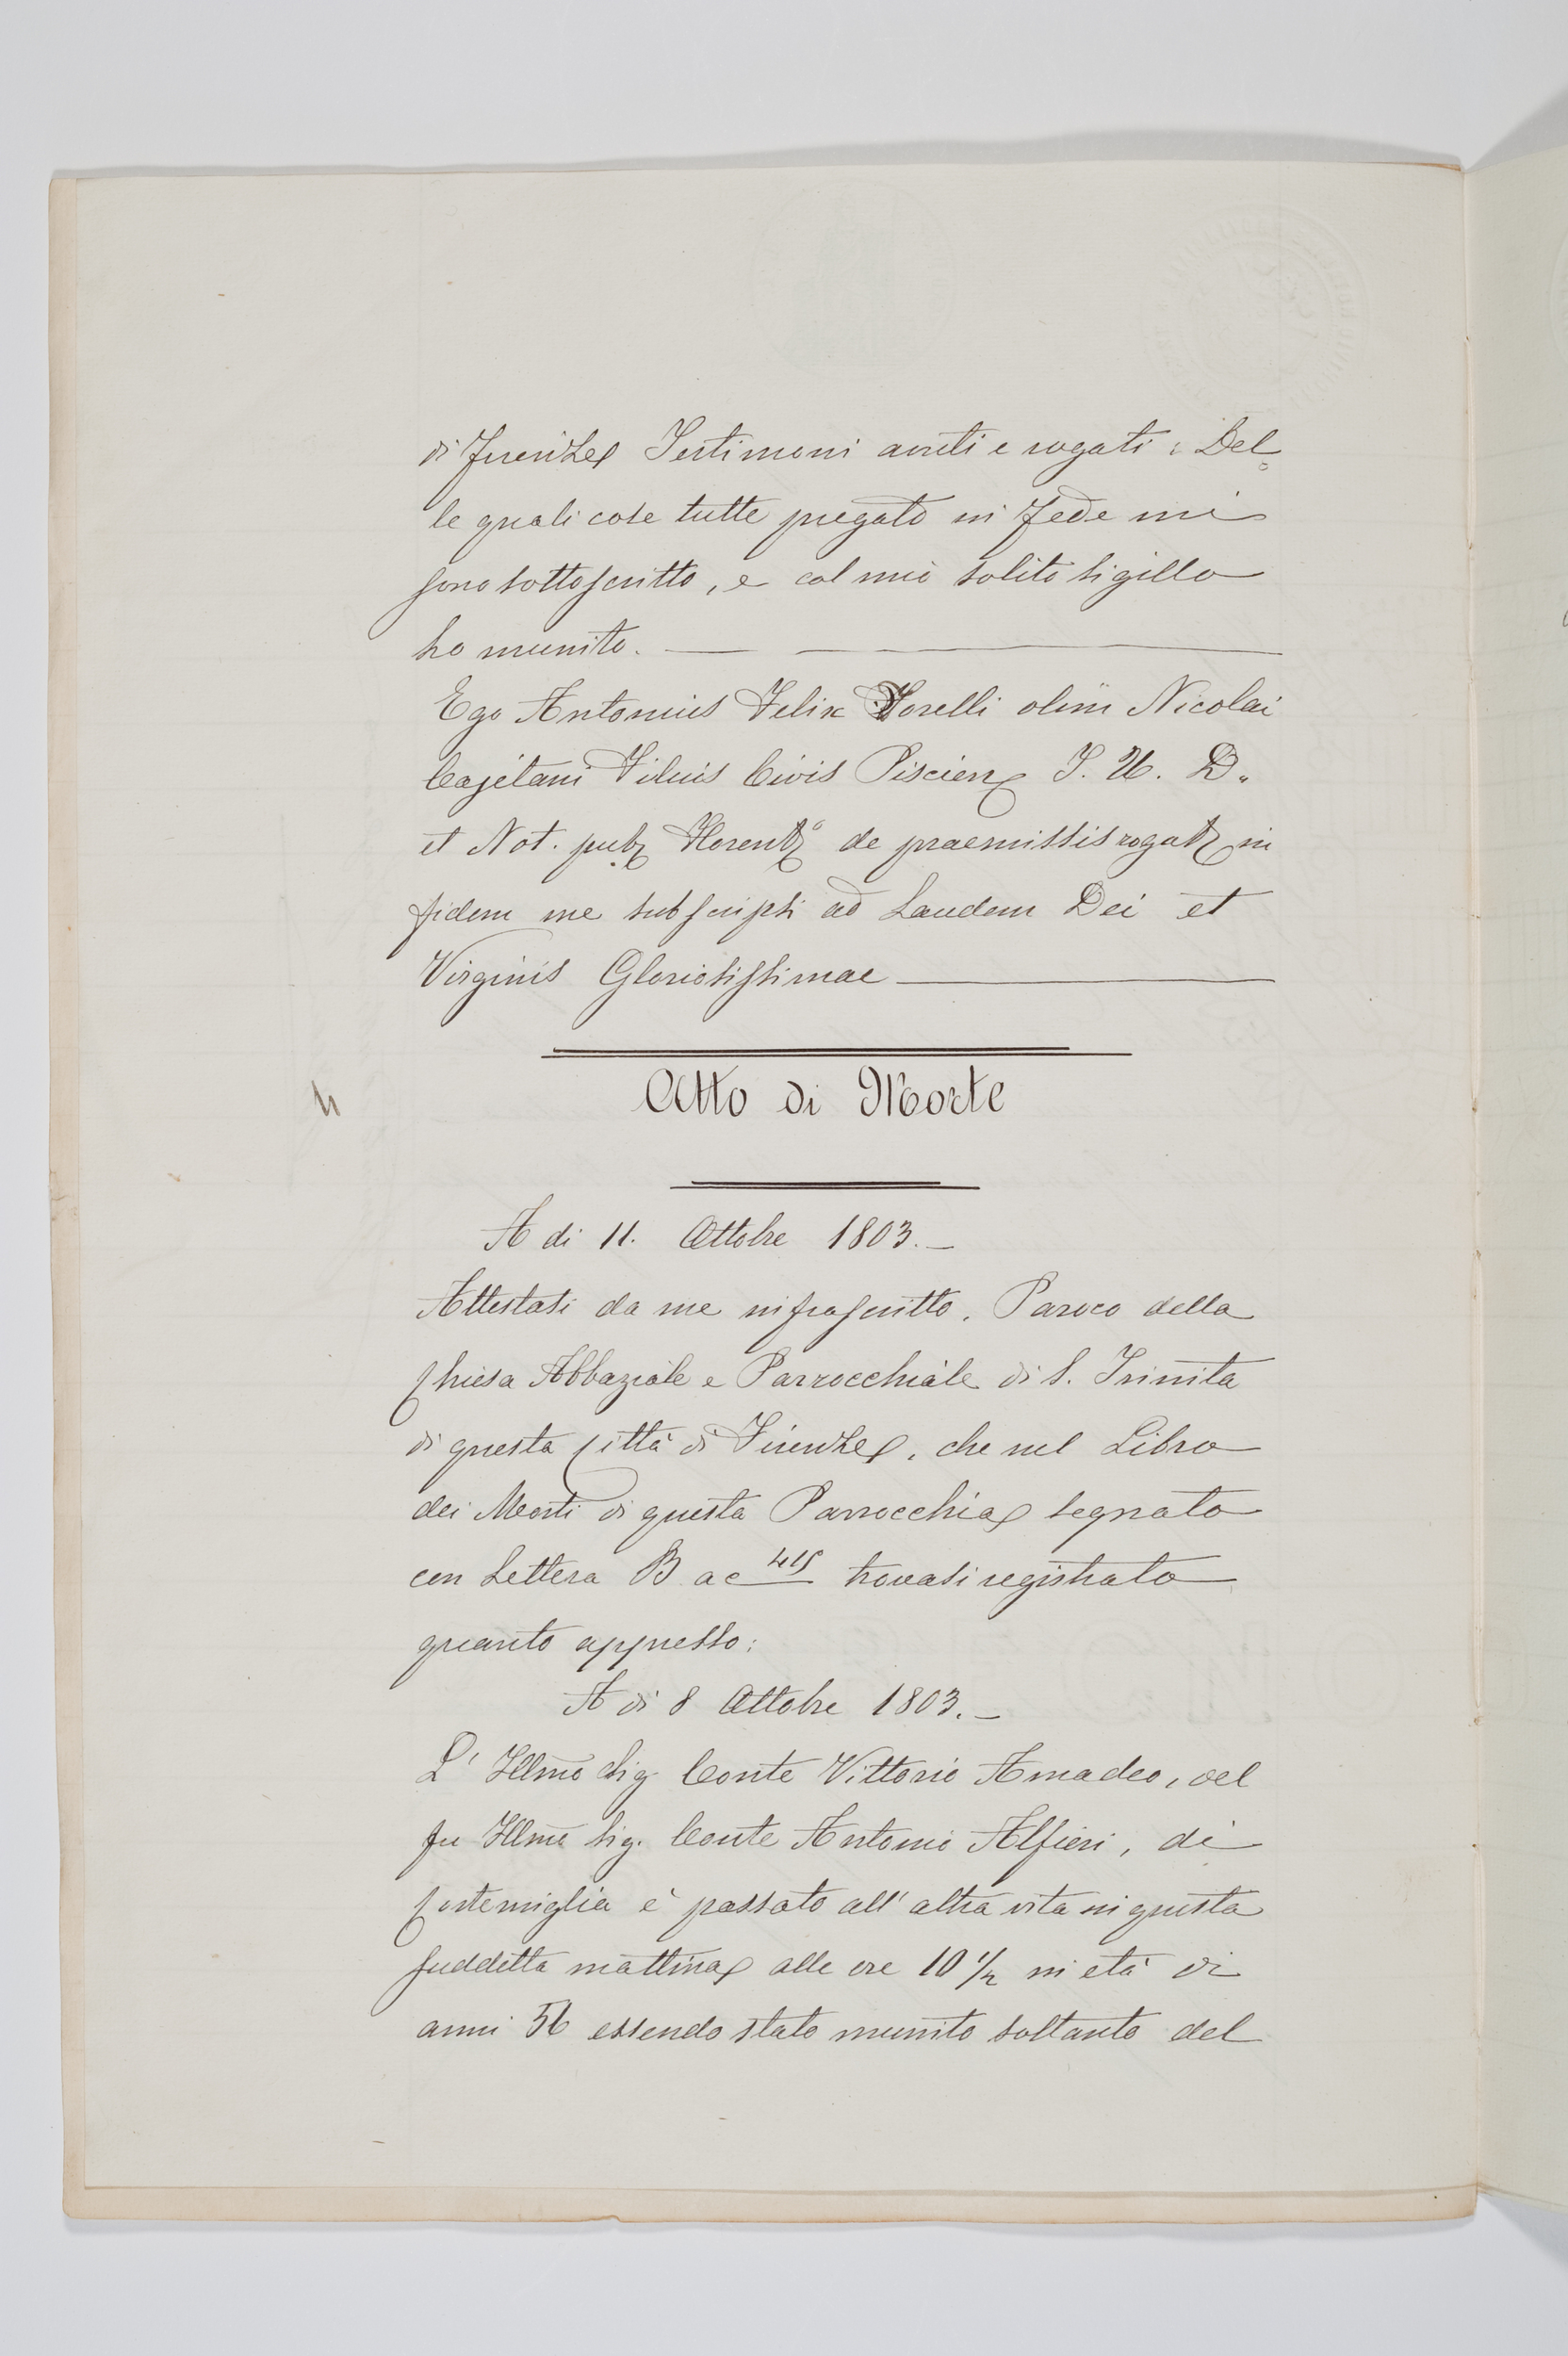 di Firenze Testimoni aviti e rogati: Del=
le quali cose tutte pregato in fede mi
sono sottoscritto, e col mio solito sigillo
ho munito.
Ego Antonius Felix Morelli olim Nicolai
Cajetani Filius Civis Piscien J. U. D.
et Not. pub Florent° de praemissis rogat in
fidem me subscripsi ad Laudem Dei et
Virginis Gloriosissimae
4
Atto di Morte
A di 11. Ottobre 1803.
Attestasi da me infrascritto. Paroco della
Chiesa Abbaziale e Parrocchiale di S. Trinita
di questa Città di Firenze, che nel Libro
dei Morti di questa Parrocchia segnato
con Lettera B a c trovasi registrato
quanto appresso:
A di 8 Ottobre 1803.
L' Illmo Sig Conte Vittorio Amadeo, del
fu Illmo Sig. Conte Antonio Alfieri, di
Cortemiglia è passato all' altra vita in questa
suddetta mattina alle ore 10 1/2 in età di
anni 56 essendo stato munito soltanto del